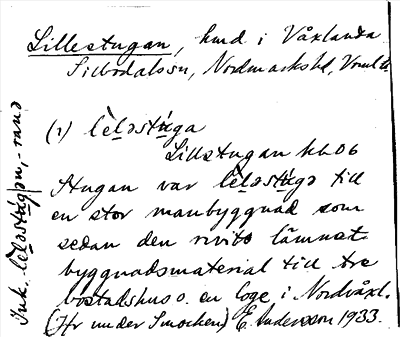 Lillestugan, hmd i Våxlanda
Silbodalssn, Nordmarkshd, Vrml
(1) lèləstúga
Lillstugan hk 06
Stugan var lèləstúgə till
en stor manbyggnad som
sedan den rivits lämnat
byggnadsmaterial till tre
bostadshus o. en loge i Nordvåxl.
(Jfr under Smocken) E. Andersson 1933.
Ink. lèləstúgən, -ranə